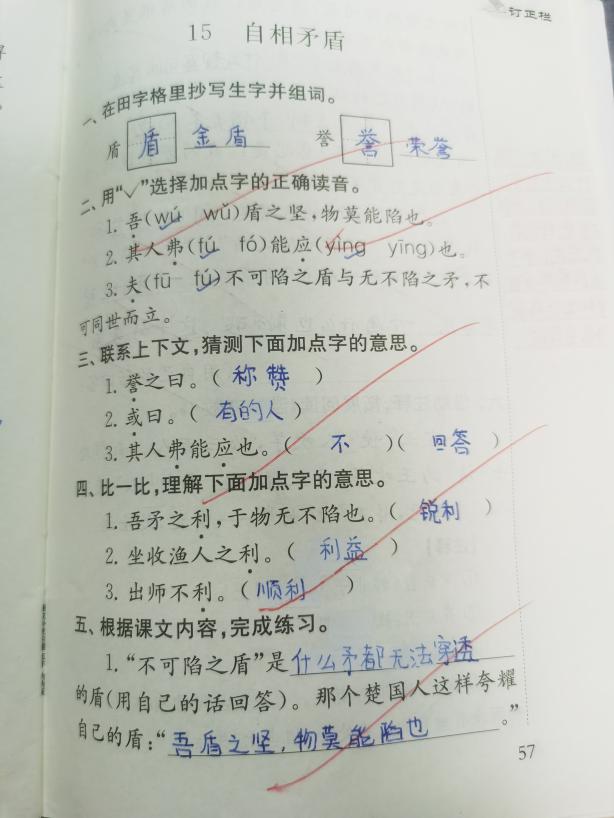 订正栏
15 自相矛盾
一、在田字格里抄写生字并组词。
盾 盾 金盾 誉 誉 荣誉
二、用“√”选择加点字的正确读音。
1. 吾(wú wǔ)盾之坚,物莫能陷也。
2. 其人弗(fú fó)能应(yìng yīng)也。
3. 夫(fū fú)不可陷之盾与无不陷之矛,不
可同世而立。
三、联系上下文,猜测下面加点字的意思。
1. 誉之曰。(称赞)
2. 或曰。(有的人)
3. 其人弗能应也。(不)(回答)
四、比一比,理解下面加点字的意思。
1. 吾矛之利,于物无不陷也。(锐利)
2. 坐收渔人之利。(利益)
3. 出师不利。(顺利)
五、根据课文内容,完成练习。
1.“不可陷之盾”是什么矛都无法穿透
的盾(用自己的话回答)。那个楚国人这样夸耀
自己的盾:“吾盾之坚,物莫能陷也。”
57